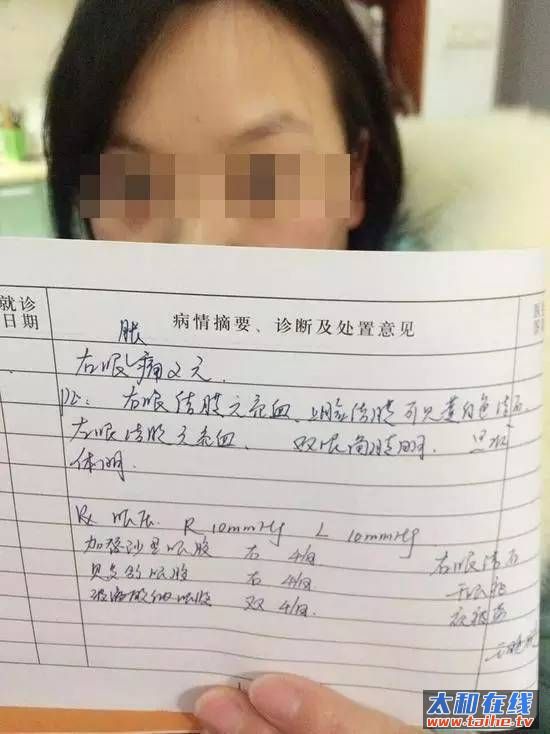 就诊
日期
病情摘要、诊断及处置意见
胀
右眼痛2天.
PE: 右眼结膜无充血、睑结膜可见黄白色结石
左眼结膜无充血. 双眼角膜明.
体明.
Rx 眼压 R 10mmHg L 10mmHg
加替沙星眼胶 右 4/日 右眼结石
贝复舒眼胶 右 4/日 干眼症
玻璃酸钠眼胶 双 4/日.
太和在线
www.taihe.tv